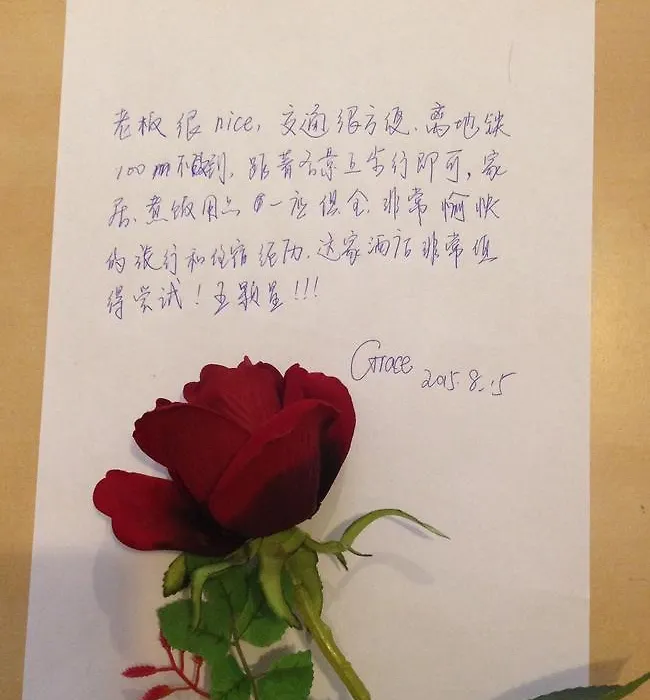 老板很nice, 交通很方便. 离地铁
100m不到, 距著名景区步行即可, 家
居. 煮饭用品一应俱全. 非常愉快
的旅行和住宿经历. 这家酒店非常值
得尝试！五颗星!!!
Grace
2015.8.15